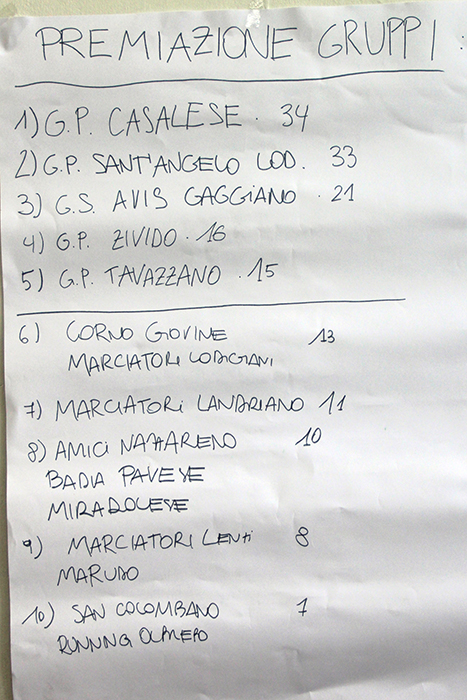 PREMIAZIONE GRUPPI:
1) G.P. CASALESE. 34
2) G.P. SANT'ANGELO LOD. 33
3) G.S. AVIS GAGGIANO. 21
4) G.P. ZIVIDO. 16
5) G.P. TAVAZZANO. 15
6) CORNO GIOVINE 13
MARCIATORI LODIGIANI
7) MARCIATORI LANDRIANO 11
8) AMICI NAZZARENO 10
BADIA PAVESE
MIRADOLESE
9) MARCIATORI LENTI 8
MARUDO
10) SAN COLOMBANO 7
RUNNING